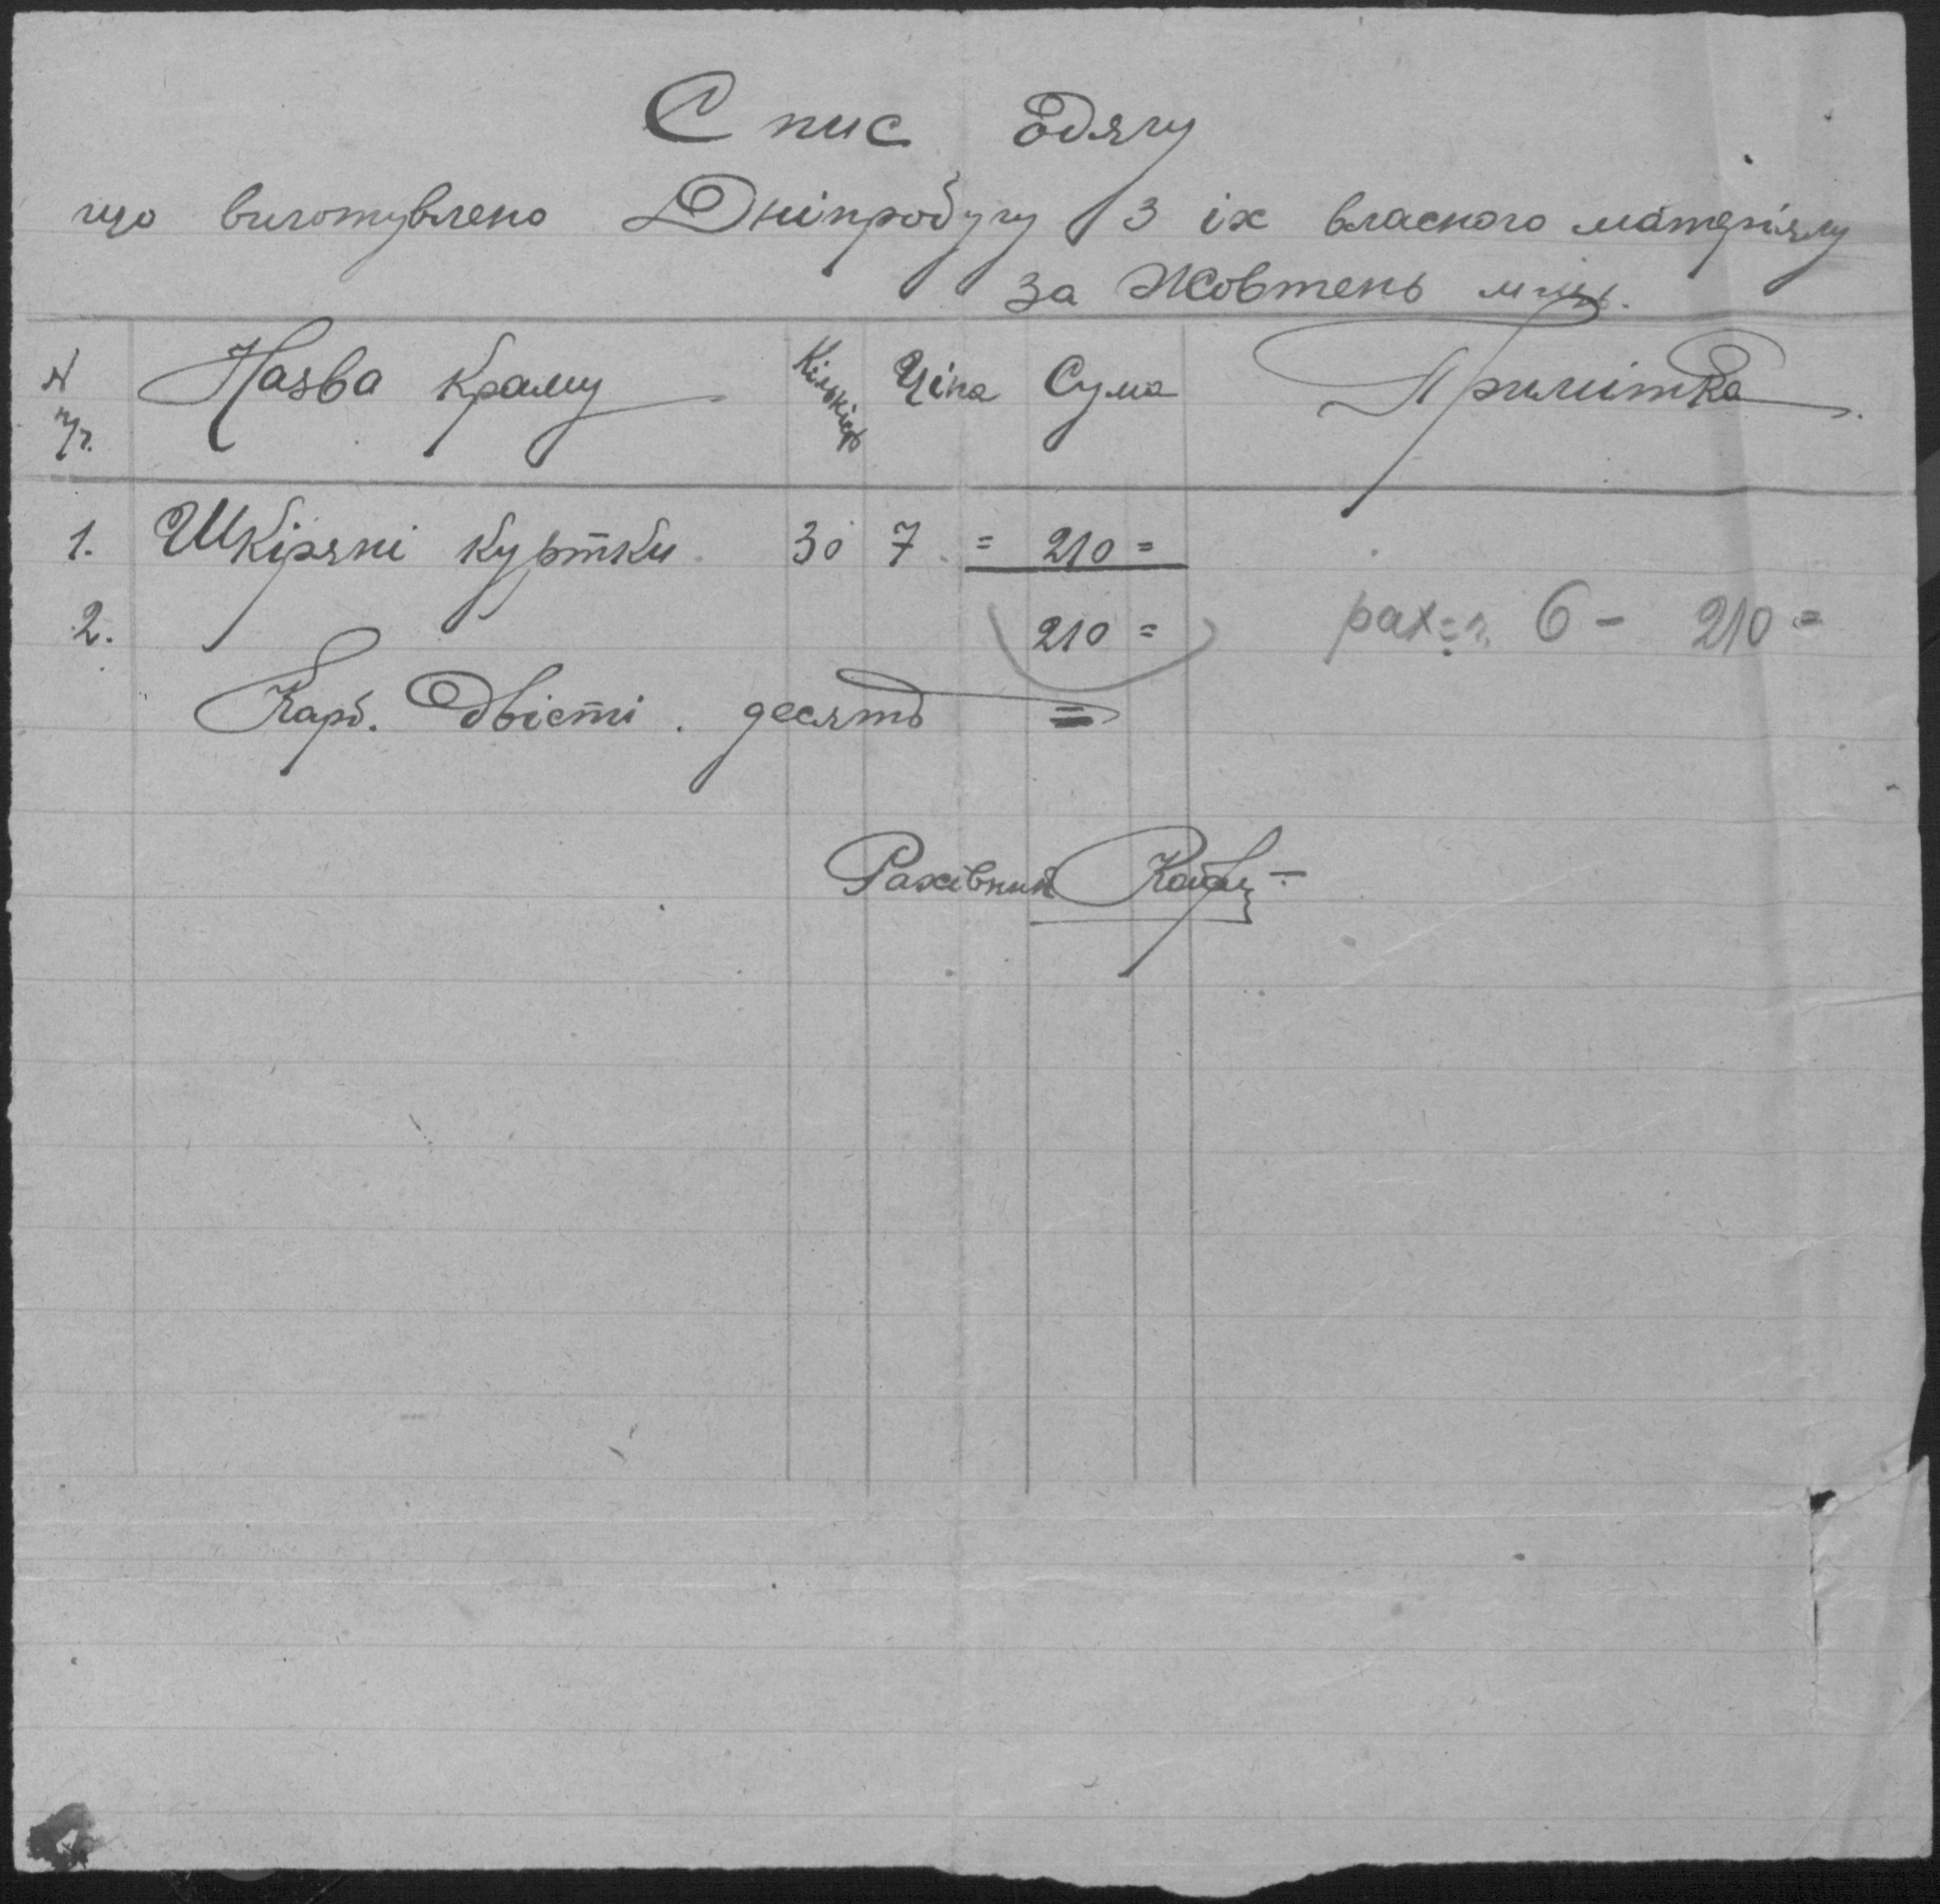 Спис одягу
що виготувлено Дніпробугу з іх власного матеріялу
за Жовтень м-ць.
N п/ч. Назва краму Кількість Ціна Сума Примітка
1. Шкіряні куртки 30 7 = 210 =
2. 210 = рах= 6 - 210 =
Карб. двісті. десять =
Рахівник